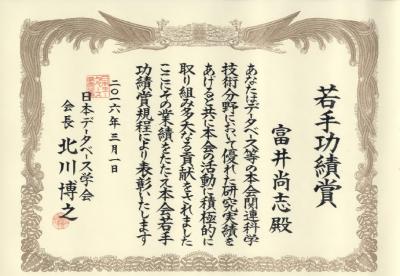 若手功績賞
富井尚志殿
あなたはデータベース等の本会関連科学
技術分野において優れた研究実績を
あげると共に本会の活動に積極的に
取り組み多大なる貢献をされました
ここにその業績をたたえ本会若手
功績賞規程により表彰いたします
二〇一六年三月一日
日本データベース学会
会長 北川博之